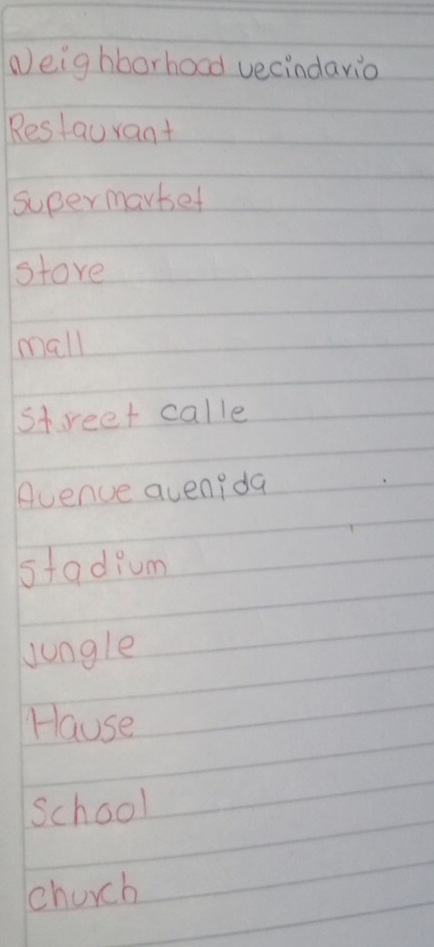 Neighborhood vecindario
Restaurant
Supermarket
Store
mall
Street calle
Avenue avenida
Stadium
Jungle
Hause
School
church